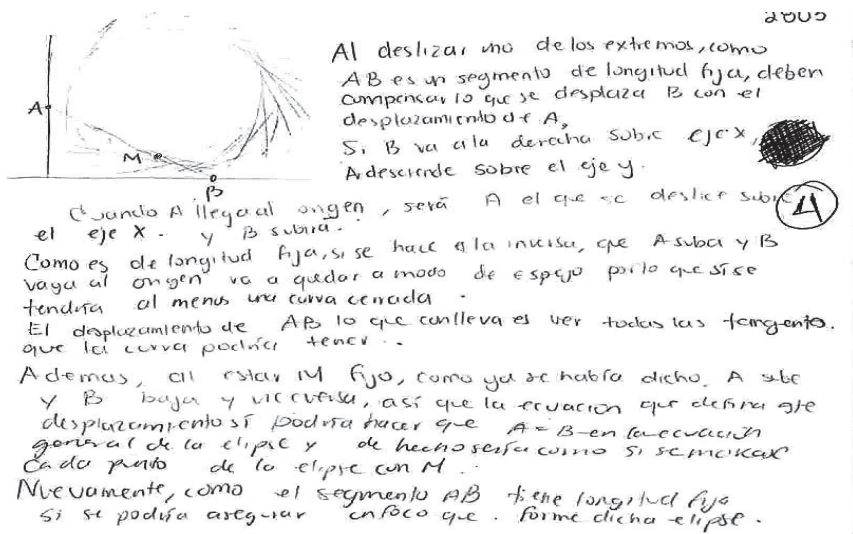 2805
Al deslizar uno de los extremos, como
AB es un segmento de longitud fija, deben
compensar lo que se desplaza B con el
desplazamiento de A,
Si B va a la derecha sobre eje x,
A desciende sobre el eje y.
A
M
B
4
Cuando A llega al origen, será A el que se deslice sobre
el eje X. y B subirá.
Como es de longitud fija, si se hace a la inversa, que A suba y B
vaya al origen va a quedar a modo de espejo por lo que sí se
tendría al menos una curva cerrada.
El desplazamiento de AB lo que conlleva es ver todas las tangentes.
que la curva podría tener..
Ademas, al estar M fijo, como ya se había dicho, A sube
y B baja y viceversa, así que la ecuación que defina este
desplazamiento sí podría hacer que A = B en la ecuación
general de la elipse y de hecho sería como si se marcase
Cada punto de la elipse con M..
Nuevamente, como el segmento AB tiene longitud fija
si se podría asegurar que. forme dicha elipse.